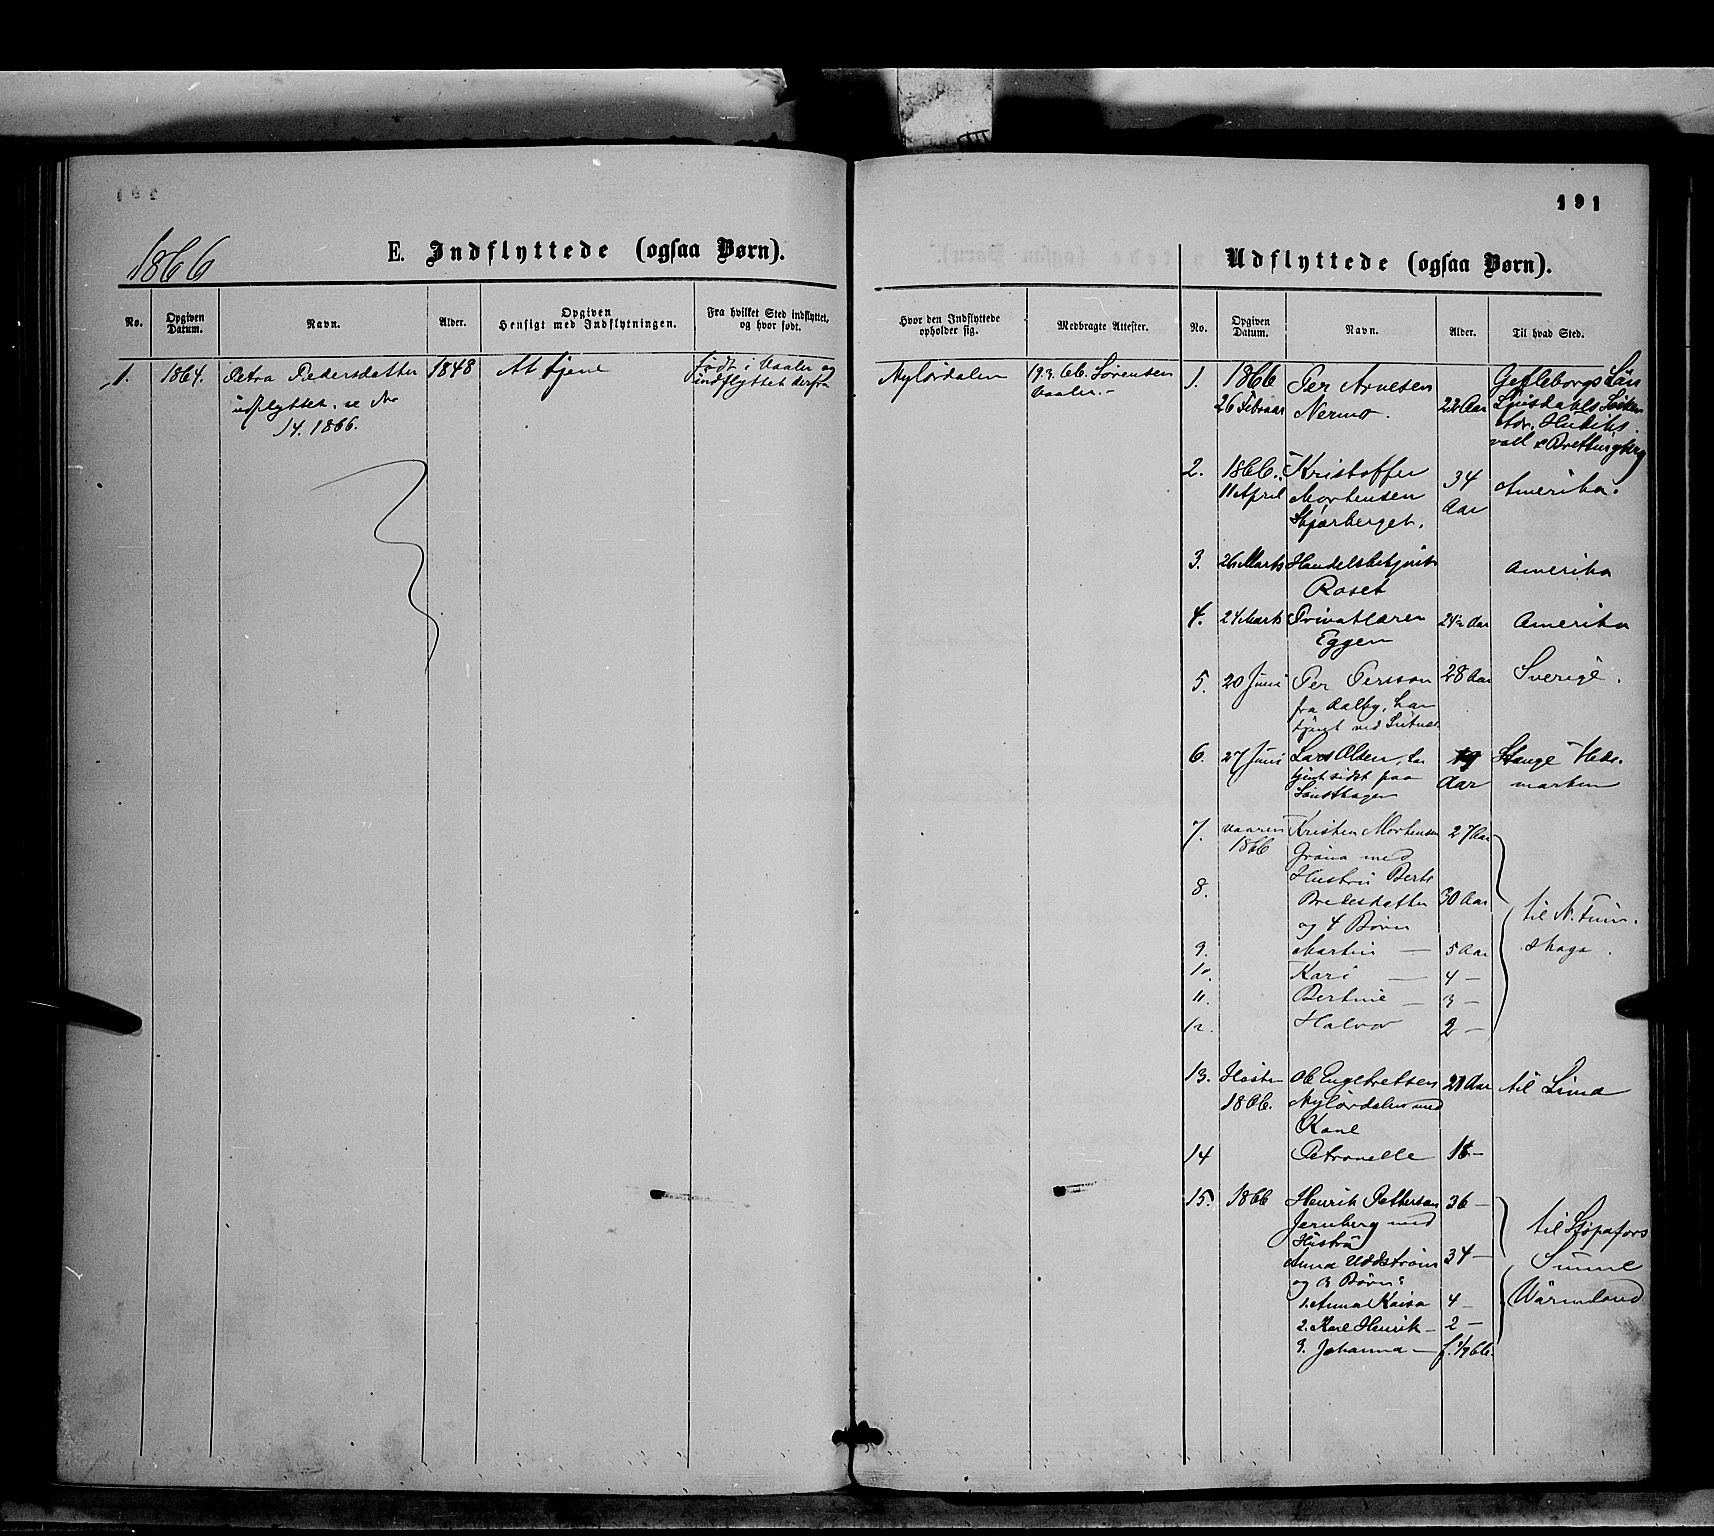 191
1866
E. Indflyttede (ogsaa Børn).
No.
Opgiven Datum.
Navn.
Alder.
Opgiven Hensigt med Indflytningen.
Fra hvilket Sted indflyttet, og hvor født.
Hvor den Indflyttede opholder sig.
Medbragte Attester.
1.
1864.
Petra Pedersdatter
udflyttet, se No
14. 1866.
1848
At tjene
født i Vaaler og
indflyttet derfra
Nylördalen
Sørensen
Vaaler.
Udflyttede (ogsaa Børn).
No.
Opgiven Datum.
Navn.
Alder.
Til hvad Sted.
1.
1866
26 Februar
Per Arnesen
Nermo.
22 Aar
Gefleborgs Län
2.
1866.
11 April
Kristoffer
Mortensen
Skjærberget.
34
Aar
Amerika.
3.
26 Marts
Handelsbetjent
Roset
Amerika
4.
24 Marts
Privatlærer
Eggen
24½ Aar
Amerika
5.
20 Juni
Per Persson
fra Dalby, har
tjent ved
28 Aar
Sverige.
6.
27 Juni
Lars Olsen, har
tjent sidst paa
19
Aar
Stange Hede-
marken
7.
Vaaren
1866
Kristen Mortensen
Gröna med
27 Aar
8.
Hustru Berte
Bredesdatter
og 4 Børn
30 Aar
til N. Finn-
skoga.
9.
Martin —
5 Aar
10.
Kari —
4 —
11.
Bertine —
3 —
12.
Halvor
2 —
13.
Høsten
1866.
Ole Engebretsen
Nylördalen med
Kone
21 Aar
til Lima
14
Petronelle
18 —
15.
1866
Henrik Pettersson
Jernberg med
Hustru
36 —
Anna Uddström
og 3 Børn:
34 —
1. Anna Kaisa
4 —
2. Karl Henrik —
2 —
3. Johanna —
f. 1/9 66.
til
Sunne
Wärmland